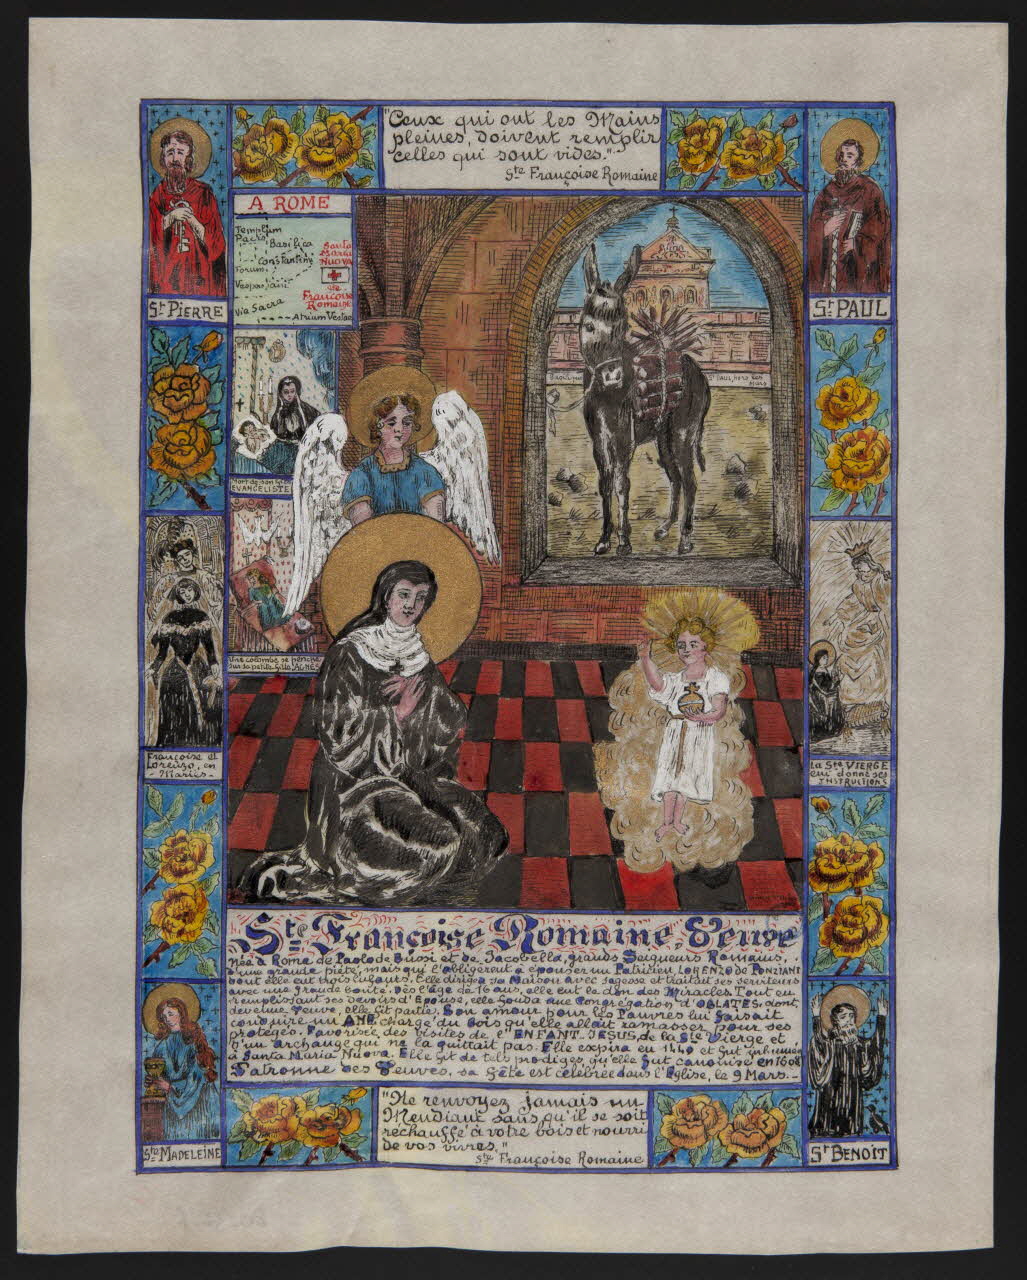 "Ceux qui ont les Mains
pleines, doivent remplir
celles qui sont vides."
Ste Françoise Romaine
A ROME
Templum
Pacis
Basilica
Constantine
Forum
Vespasiani
Via Sacra
Atrium Vestae
Santa
Maria
Nuova
Ste
Françoise
Romaine
St PIERRE
St PAUL
St PAUL, hors les
Murs
Mort de son fils
EVANGELISTE
Une colombe se penche
sur sa petite fille "AGNÈS"
Françoise et
Lorenzo, en
- Mariés -
La Ste VIERGE
lui donne ses
INSTRUCTIONS
Ste Françoise Romaine, Veuve
Née à Rome de Paolo de Bussi et de Jacobella, grands Seigneurs Romains,
d'une grande piété, mais qui l'obligèrent à épouser un Patricien LORENZO de PONZIANI
dont elle eut trois enfants. Elle dirigea sa Maison avec sagesse et traitait ses serviteurs
avec une grande bonté. Dès l'âge de 16 ans, elle eut le don des Miracles. Tout en
remplissant ses devoirs d'Epouse, elle fonda une Congrégation d'OBLATES, dont,
devenue Veuve, elle fit partie. Son amour pour les Pauvres lui faisait
conduire un ANE chargé du bois qu'elle allait ramasser pour ses
protégés. Favorisée des visites de l'ENFANT-JESUS, de la Ste Vierge et
d'un archange qui ne la quittait pas. Elle expira en 1440 et fut inhumée
à Santa Maria Nuova. Elle fit de tels prodiges, qu'elle fut canonisée en 1608
Patronne des Veuves, sa fête est célébrée dans l'Eglise, le 9 Mars. -
"Ne renvoyez jamais un
Mendiant sans qu'il se soit
réchauffé à votre bois et nourri
de vos vivres."
Ste Françoise Romaine
Ste MADELEINE
St BENOIT